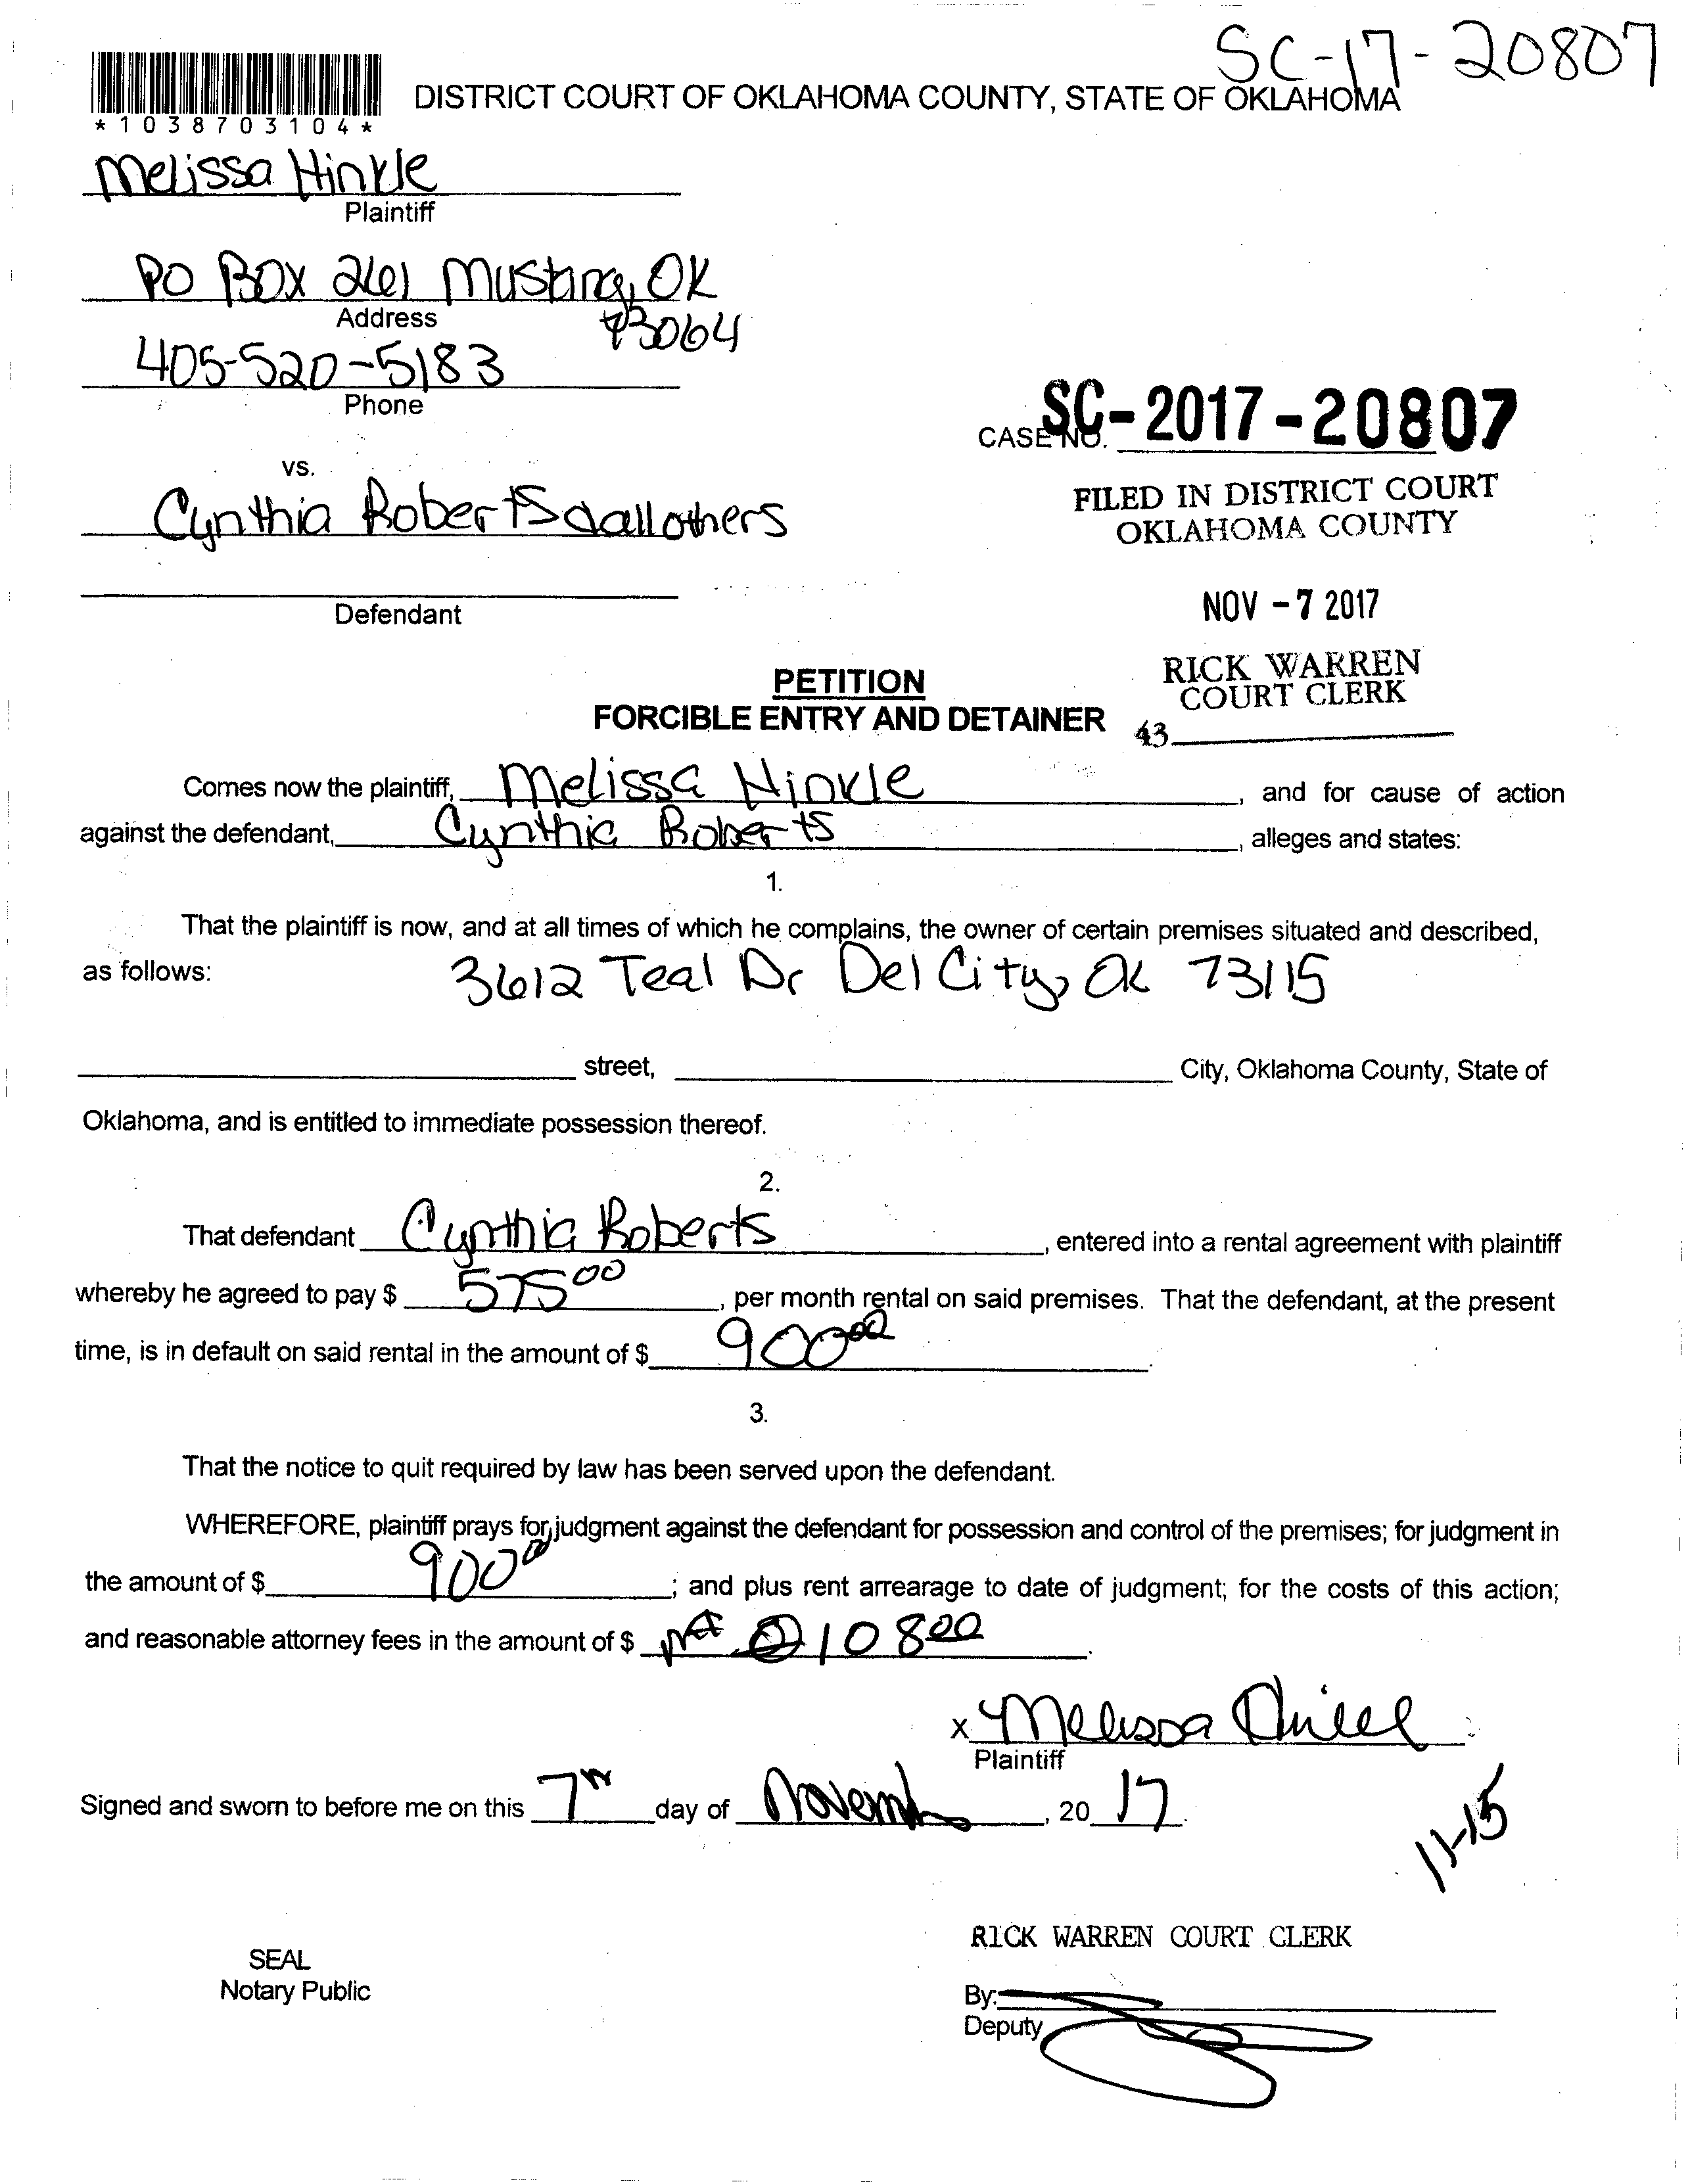 SC-17-20807
*1038703104*
DISTRICT COURT OF OKLAHOMA COUNTY, STATE OF OKLAHOMA
Melissa Hinkle
Plaintiff
PO BOX 261 Mustang, OK
73064
Address
405-520-5183
Phone
CASE NO. SC-2017-20807
vs.
FILED IN DISTRICT COURT
OKLAHOMA COUNTY
Cynthia Roberts &allothers
Defendant
NOV -7 2017
RICK WARREN
COURT CLERK
43
PETITION
FORCIBLE ENTRY AND DETAINER
Comes now the plaintiff, Melissa Hinkle, and for cause of action
against the defendant, Cynthia Roberts, alleges and states:
1.
That the plaintiff is now, and at all times of which he complains, the owner of certain premises situated and described,
as follows: 3612 Teal Dr Del City, OK 73115
street, City, Oklahoma County, State of
Oklahoma, and is entitled to immediate possession thereof.
2.
That defendant Cynthia Roberts, entered into a rental agreement with plaintiff
whereby he agreed to pay $ 575 00, per month rental on said premises. That the defendant, at the present
time, is in default on said rental in the amount of $ 900 00.
3.
That the notice to quit required by law has been served upon the defendant.
WHEREFORE, plaintiff prays for judgment against the defendant for possession and control of the premises; for judgment in
the amount of $ 900 00; and plus rent arrearage to date of judgment; for the costs of this action;
and reasonable attorney fees in the amount of $ 108 00.
x Melissa Hinkle
Plaintiff
Signed and sworn to before me on this 7th day of November, 20 17.
11-15
RICK WARREN COURT CLERK
SEAL
Notary Public
By:
Deputy